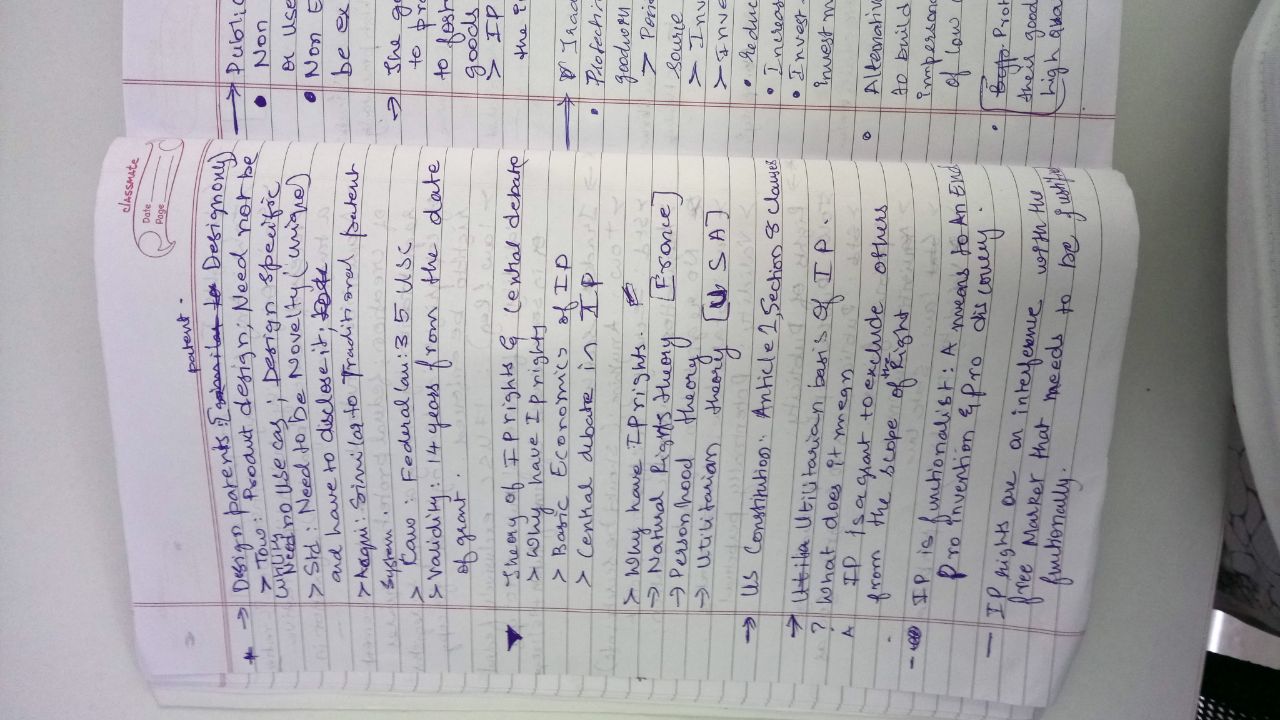 classmate
Date
Page
patent.
* → Design patents: [similar to Design only)
> Taw: Product design; Need not be
utility
Need no use cas; Design specific
> Std: Need to be Novelty (unique)
and have to disclose it;
> Acqui: Similar to Traditional patent
system.
> Law: Federal law: 35 USC
> Validity: 14 years from the date
of grant.
Theory of IP rights & Central debate
> Why have IP rights
> Basic Economics of IP
> Central debate in IP
> Why have IP rights.
→ Natural Rights theory [France]
→ Personhood theory
→ Utilitarian theory [USA]
→ US Constitution: Article 1, Section 8 clause 8
→ Utilita Utilitarian basis of IP.
? What does it mean
IP is a grant to exclude others
from the scope of the Right
- IP is functionalist: A means to An End
Pro Invention & Pro discovery.
- IP rights are an interference with the
free Market that needs to be justified
functionally.
→ Public
• Non
a use
• Non E
be ex
→ The go
to pro
to fost
goods
> IP
the i
→ Trad
• Protecting
goodwill
> Peri
source
> Inv
> Inve
• Reduc
• Increas
• Invest
investm
Alternativ
to build
impersona
of low
• Prot
their good
high qua